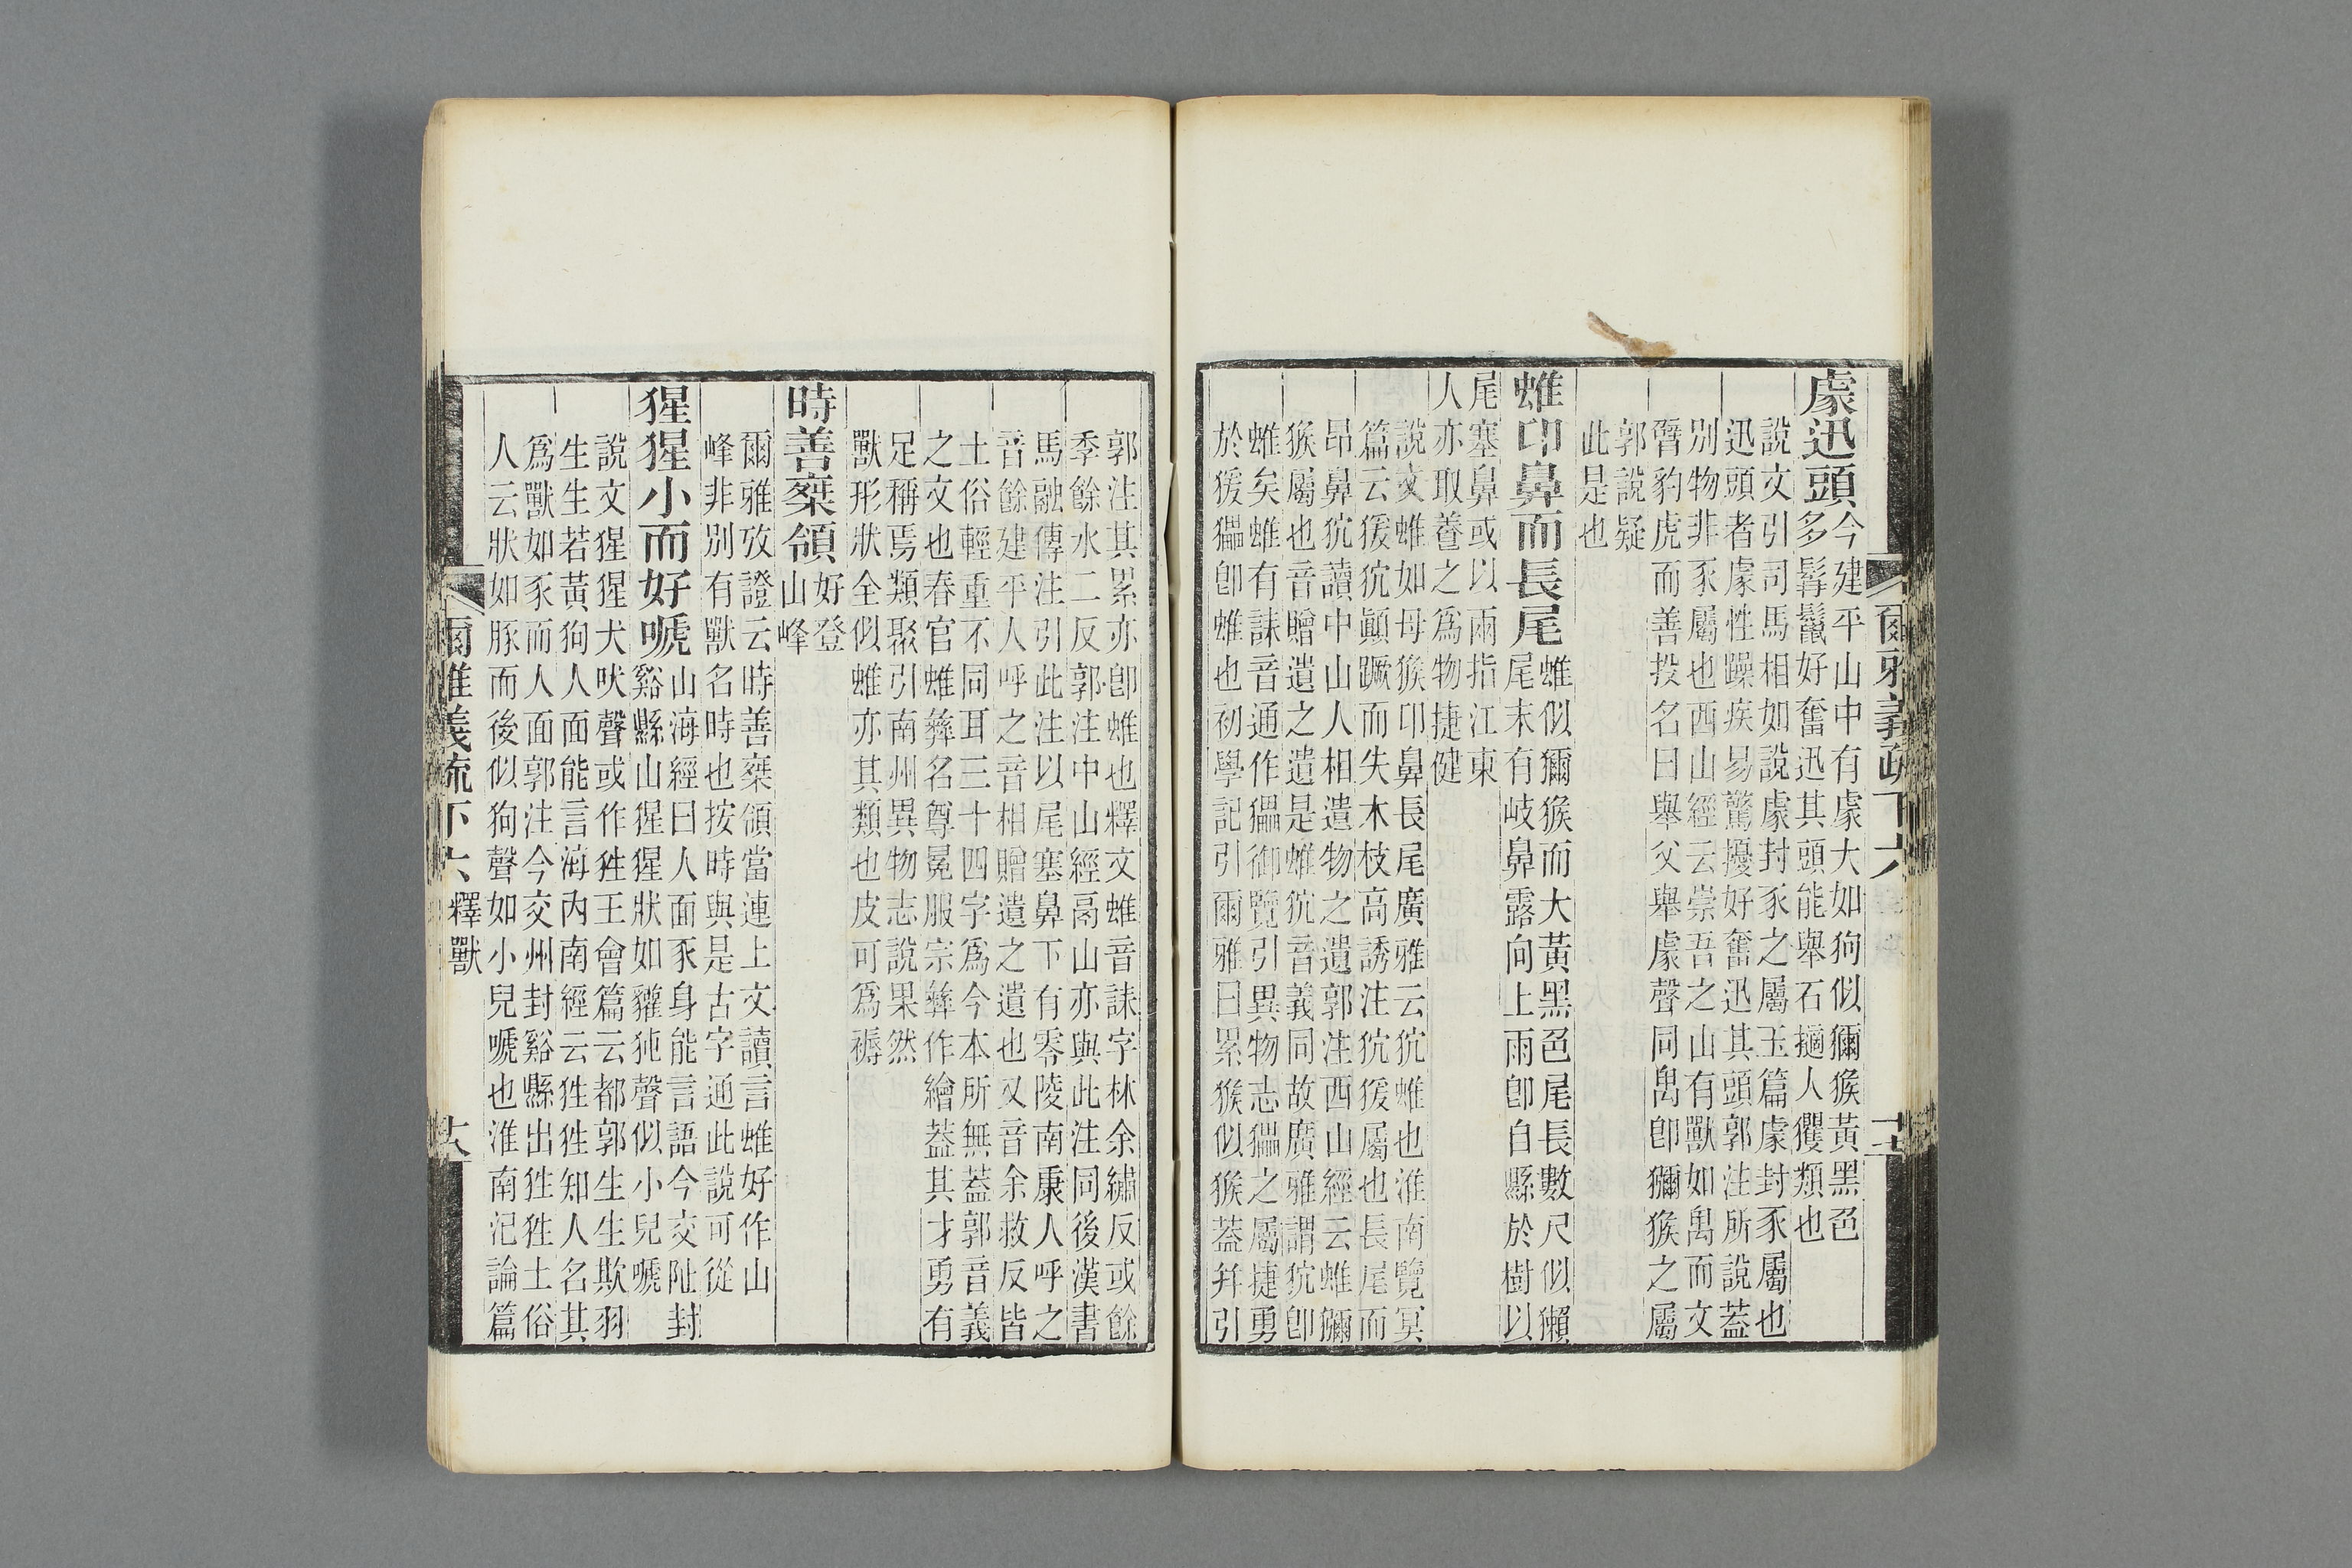 豦迅頭今建平山中有豦大如狗似獼猴黃黑色
多髯鬣好奮迅其頭能舉石擿人玃類也
說文引司馬相如說豦封豕之屬玉篇豦封豕屬也
迅頭者豦性躁疾易驚擾好奮迅其頭郭注所說蓋
別物非豕屬也西山經云崇吾之山有獸如禺而文
臂豹虎而善投名曰舉父舉豦聲同禺卽獼猴之屬
郭說疑
此是也
蜼卬鼻而長尾蜼似獼猴而大黃黑色尾長數尺似獺
尾末有岐鼻露向上雨卽自縣於樹以
尾塞鼻或以兩指江東
人亦取養之為物捷健
說文蜼如母猴卬鼻長尾廣雅云狖蜼也淮南覽冥
篇云猨狖顚蹶而失木枝高誘注狖猨屬也長尾而
昂鼻狖讀中山人相遺物之遺郭注西山經云蜼獼
猴屬也音贈遺之遺是蜼狖音義同故廣雅謂狖卽
蜼矣蜼有誄音通作猵御覽引異物志猵之屬捷勇
於猨猵卽蜼也初學記引爾雅曰累猴似猴蓋幷引
爾雅義疏下六
十七
郭注其累亦卽蜼也釋文蜼音誄字林余繡反或餘
季餘水二反郭注中山經鬲山亦與此注同後漢書
馬融傳注引此注以尾塞鼻下有零陵南康人呼之
音餘建平人呼之音相贈遺之遺也又音余救反皆
土俗輕重不同耳三十四字為今本所無蓋郭音義
之文也春官蜼彝名尊冕服宗彝作繪蓋其才勇有
足稱焉類聚引南州異物志說果然
獸形狀全似蜼亦其類也皮可為褥
時善椉領好登
山峰
爾雅攷證云時善椉領當連上文讀言蜼好作山
峰非別有獸名時也按時與是古字通此說可從
猩猩小而好嗁山海經曰人面豕身能言語今交阯封
谿縣山猩猩狀如貛㹠聲似小兒嗁
說文猩猩犬吠聲或作狌王會篇云都郭生生欺羽
生生若黃狗人面能言海內南經云狌狌知人名其
為獸如豕而人面郭注今交州封谿縣出狌狌土俗
人云狀如豚而後似狗聲如小兒嗁也淮南氾論篇
爾雅義疏下六 釋獸
十八